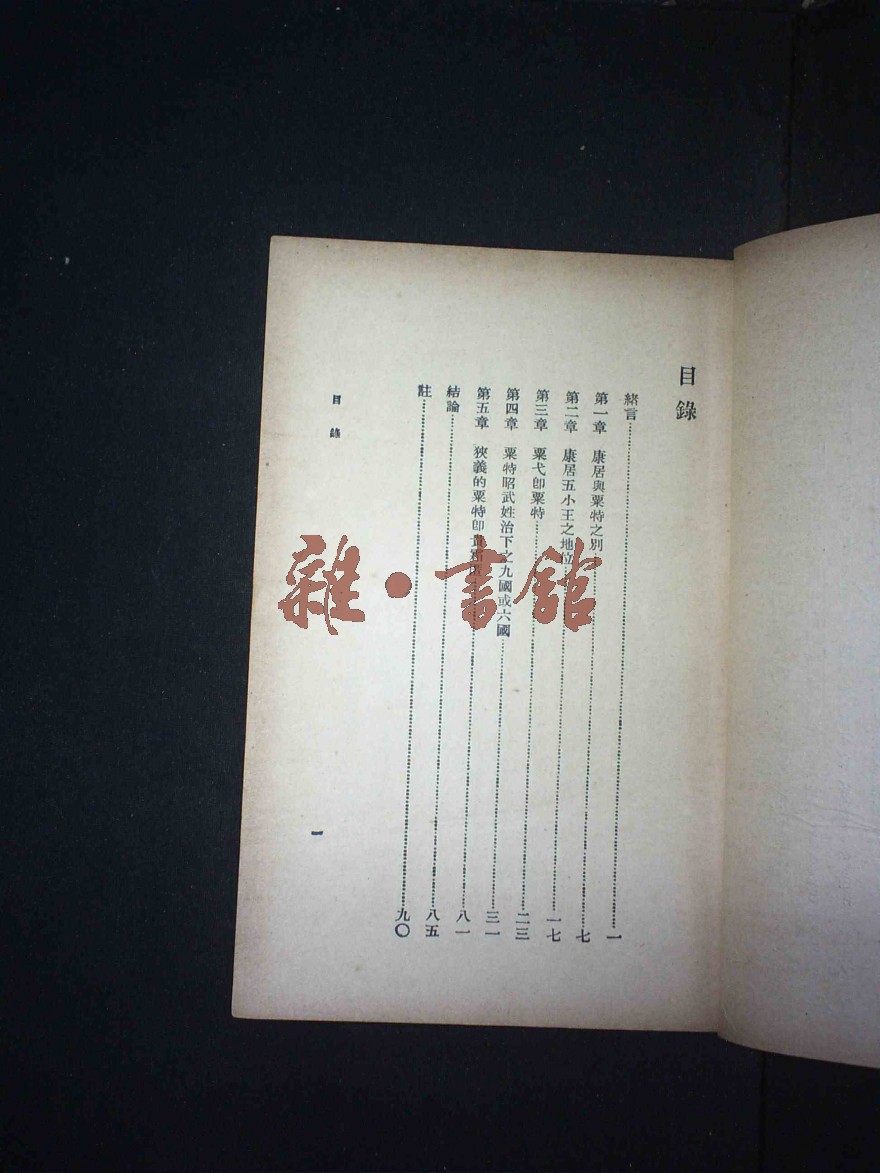 目錄
緒言……一
第一章　康居與粟特之別……七
第二章　康居五小王之地位……一七
第三章　粟弋卽粟特……二三
第四章　粟特昭武姓治下之九國或六國……三一
第五章　狹義的粟特卽……八一
結論……八五
註……九〇
目錄
一
雜·書館